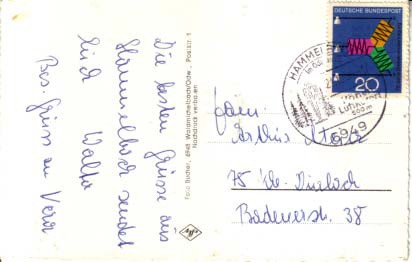 Die besten Grüsse aus
Hammelbach sendet
Euch Walter
Bes. Gruss an Vera
Foto Bücher, 6948 Waldmichelbach/Odw., Poststr. 1
Nachdruck verboten
DEUTSCHE BUNDESPOST
20
HAMMEL
Luftkurort
6949
Fam.
Arthur
75 Khe-Durlach
Badenerstr. 38